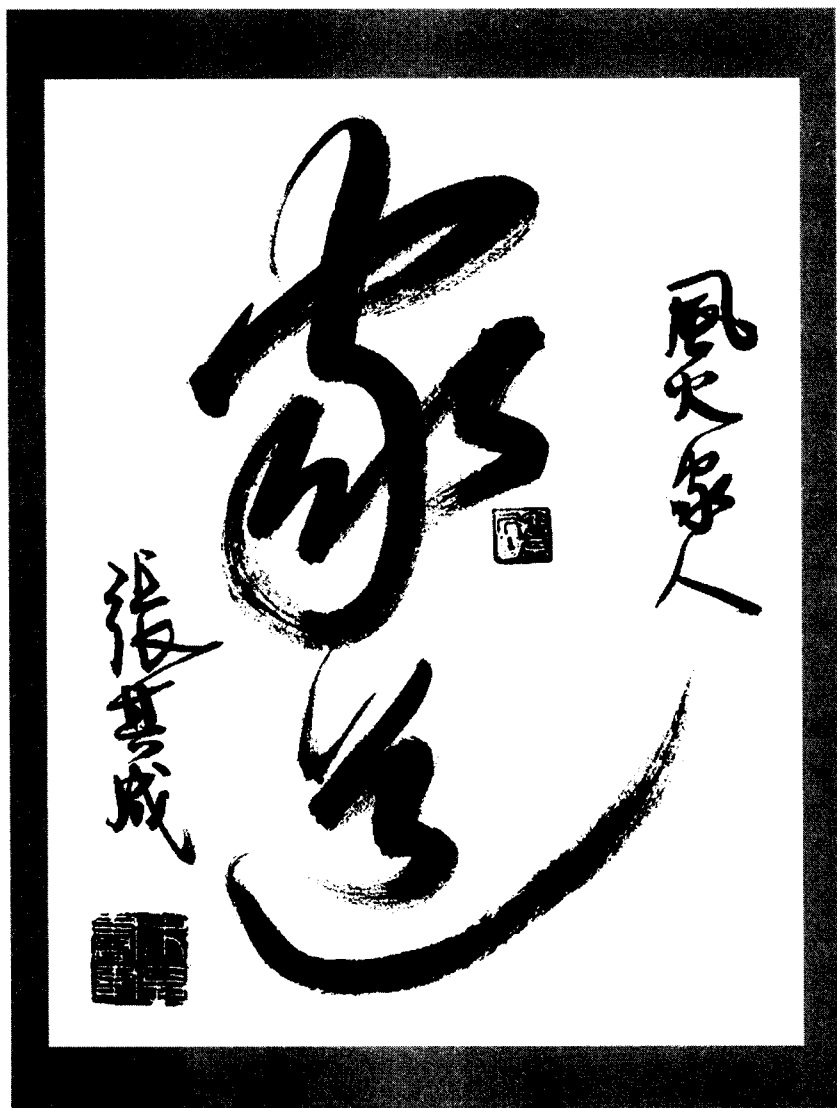 風火家人
家道
張其成